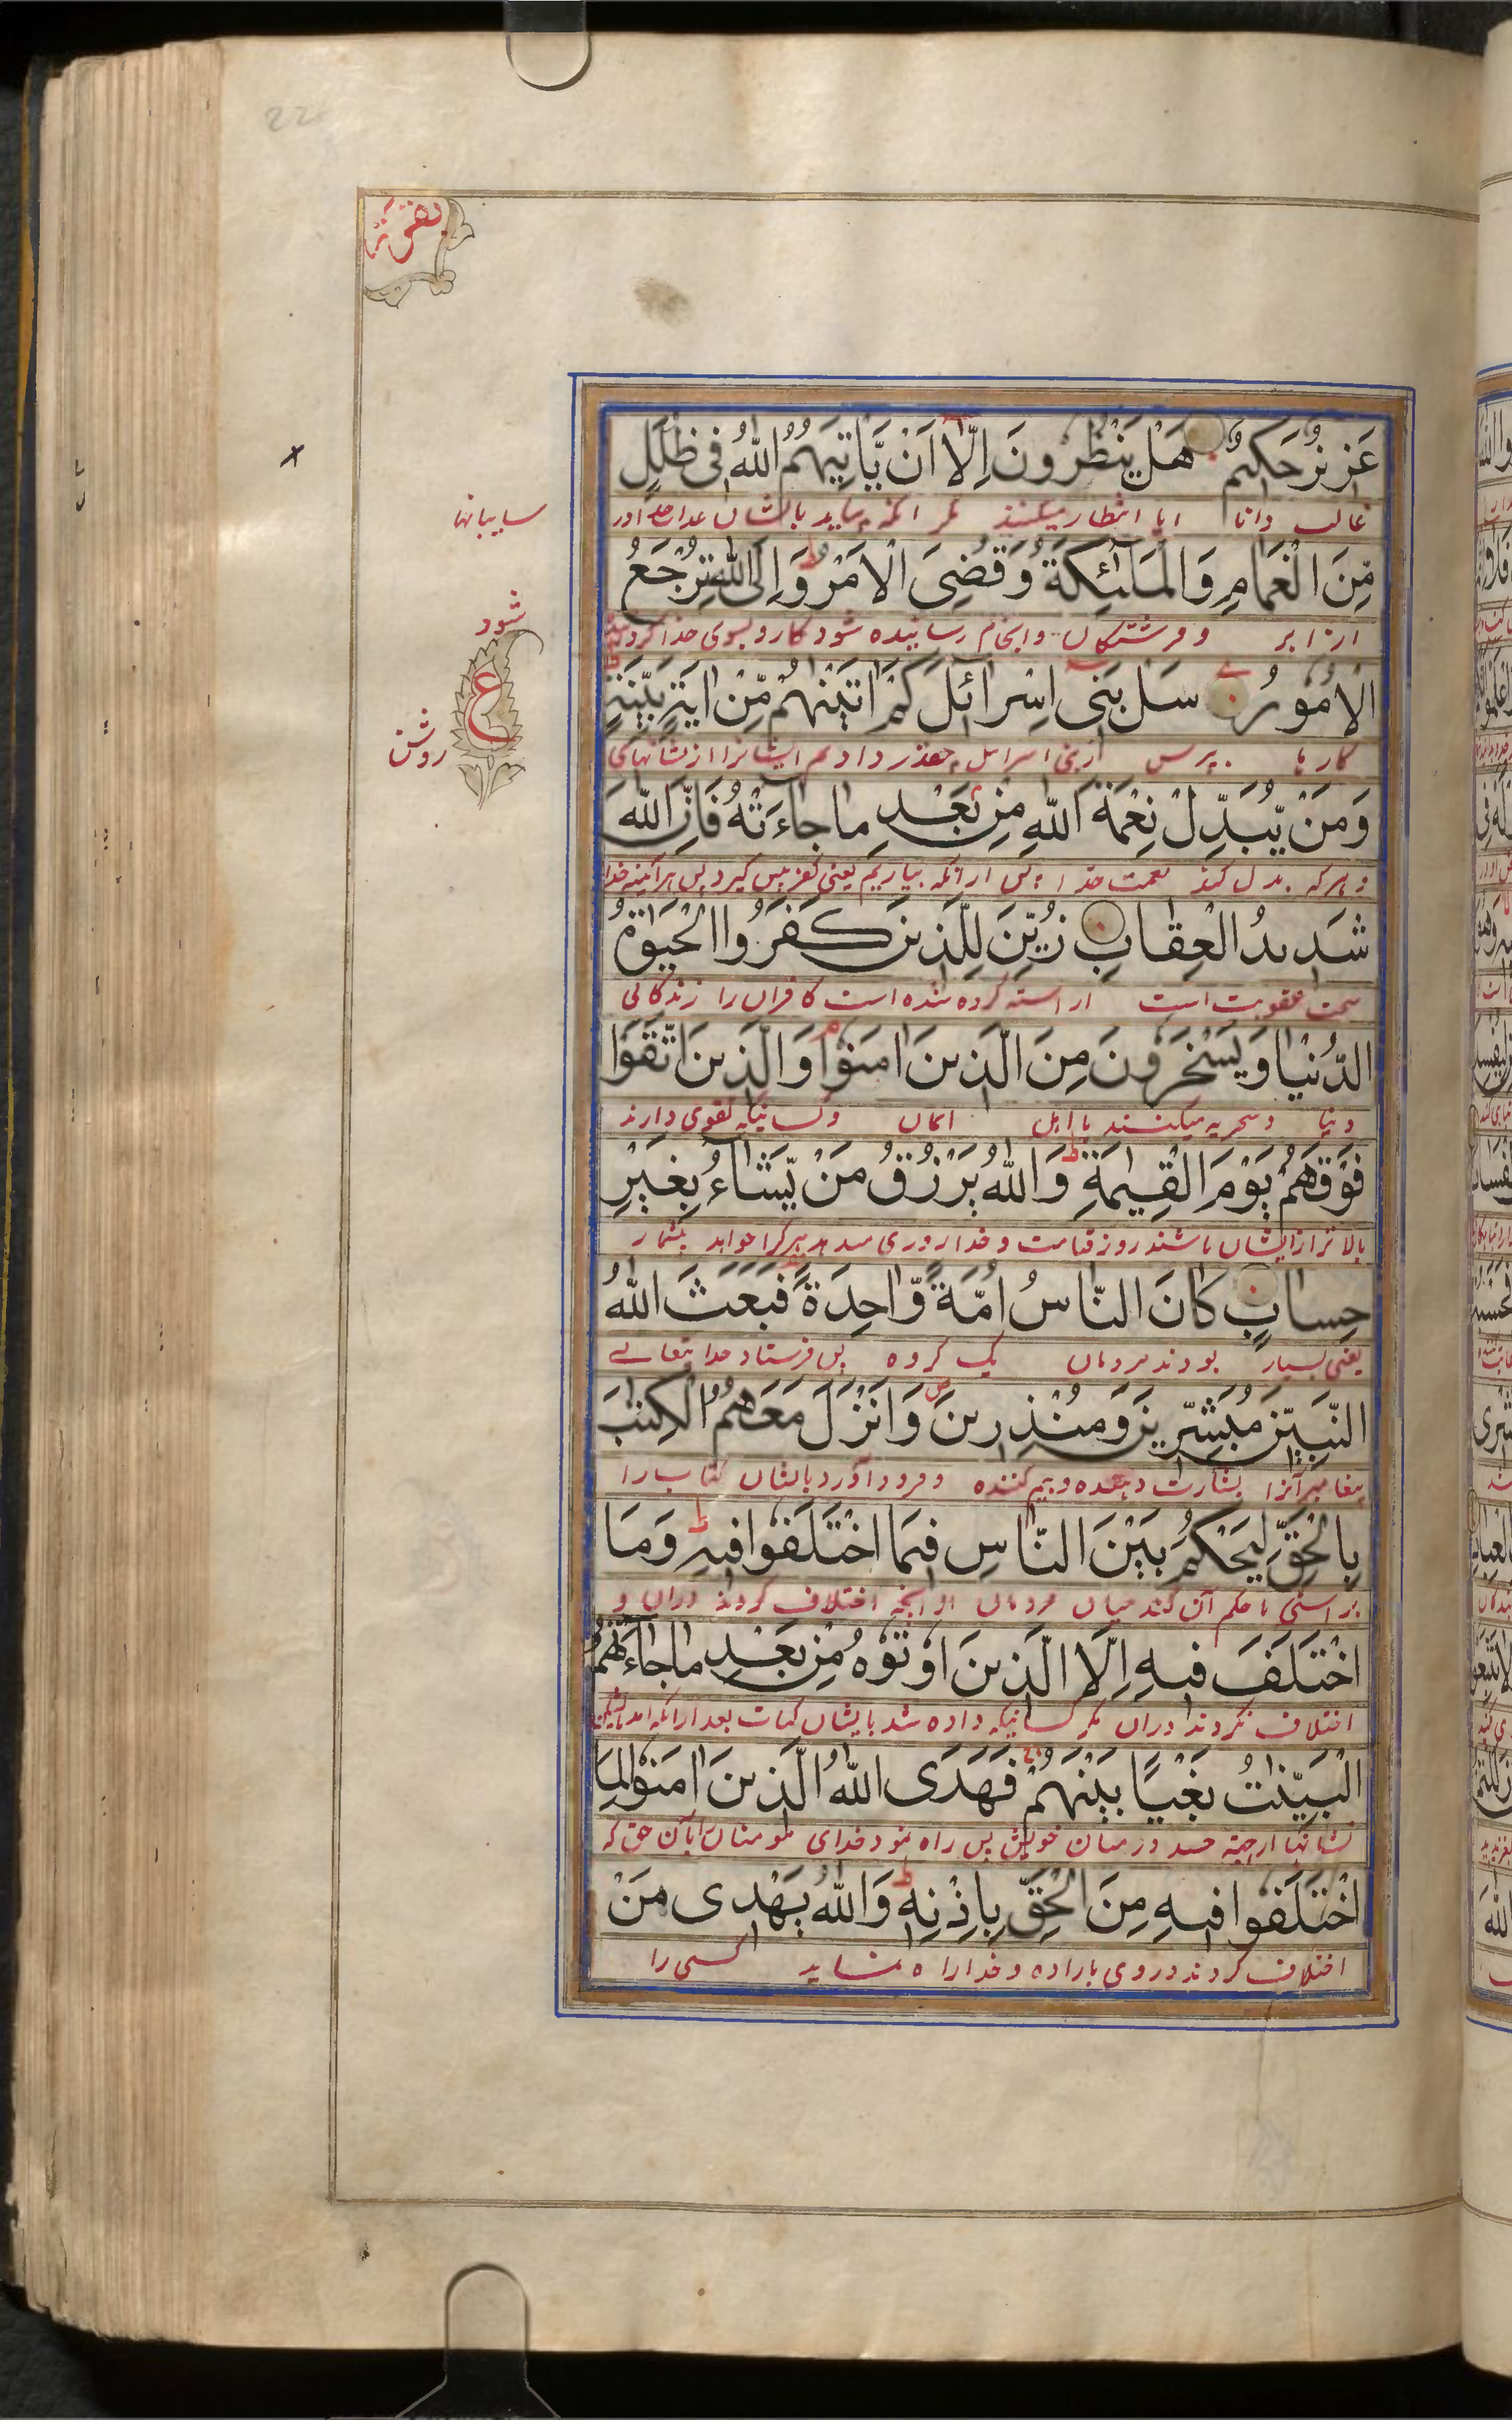 22
بقره
عَزِيزٌ حَكِيمٌ هَلْ يَنْظُرُونَ اِلَّا اَنْ يَّاتِيَهُمُ اللّٰهُ فِى ظُلَلٍ
غالب و دانا ایا انتظار میکنند مکر انکه بیاید بایشان عذاب خدا در
سایبانها
مِّنَ الْغَمَامِ وَالْمَلٰٓئِكَةُ وَقُضِىَ الْاَمْرُ ط وَاِلَى اللّٰهِ تُرْجَعُ
از ابر و فرشتکان و انجام رسانیده شود کار و بسوی خدا کردانیده
شود
الْاُمُوْرُ سَلْ بَنِى اِسْرَائِلَ كَمْ اٰتَيْنٰهُمْ مِّنْ اٰيَةٍ بَيِّنَةٍ ط
ع
کارها بپرس از بنی اسرایل چقدر دادیم ایشانرا از نشانهای
روشن
وَمَنْ يُّبَدِّلْ نِعْمَةَ اللّٰهِ مِنْ بَعْدِ مَا جَاءَتْهُ فَاِنَّ اللّٰهَ
و هرکه بدل کند نعمت خدا پس ازانکه بیاریم یعنی کفر پیش کیرد پس هرآئینه خدا
شَدِيدُ الْعِقَابِ زُيِّنَ لِلَّذِينَ كَفَرُوا الْحَيٰوةُ
سخت عقوبت است اراسته کرده شده است کافران را زندکانی
الدُّنْيَا وَيَسْخَرُونَ مِنَ الَّذِينَ اٰمَنُوْا م وَالَّذِينَ اتَّقَوْا
دنیا و سخریه میکنند با اهل ایمان و کسانیکه تقوی دارند
فَوْقَهُمْ يَوْمَ الْقِيٰمَةِ ط وَاللّٰهُ يَرْزُقُ مَنْ يَّشَاءُ بِغَيْرِ
بالاتر از ایشان باشند روز قیامت و خدا روزی میدهد هرکرا خواهد بیشمار
حِسَابٍ كَانَ النَّاسُ اُمَّةً وَّاحِدَةً فَبَعَثَ اللّٰهُ
یعنی بسیار بودند مردمان یک کروه پس فرستاد خدا تعالے
النَّبِيّٖنَ مُبَشِّرِينَ وَمُنْذِرِينَ ص وَاَنْزَلَ مَعَهُمُ الْكِتٰبَ
پیغامبرانرا بشارت دهنده و بیم کننده و فرود آورد بایشان کتاب را
بِالْحَقِّ لِيَحْكُمَ بَيْنَ النَّاسِ فِيمَا اخْتَلَفُوا فِيهِ ط وَمَا
براستی تا حکم آن کند میان مردمان در آنچه اختلاف کردند دران و
اخْتَلَفَ فِيهِ اِلَّا الَّذِينَ اُوْتُوْهُ مِنْ بَعْدِ مَا جَاءَتْهُمُ
اختلاف نکردند دران مکر کسانیکه داده شد بایشان کتاب بعد ازانکه امد بایشان
الْبَيِّنٰتُ بَغْيًا بَيْنَهُمْ فَهَدَى اللّٰهُ الَّذِينَ اٰمَنُوْا لِمَا
نشانها از جهته حسد در میان خویش پس راه نمود خدای مومنان را بآن حق که
اخْتَلَفُوا فِيهِ مِنَ الْحَقِّ بِاِذْنِهٖ ط وَاللّٰهُ يَهْدِى مَنْ
اختلاف کردند در وی باراده و خدا راه نماید کسی را